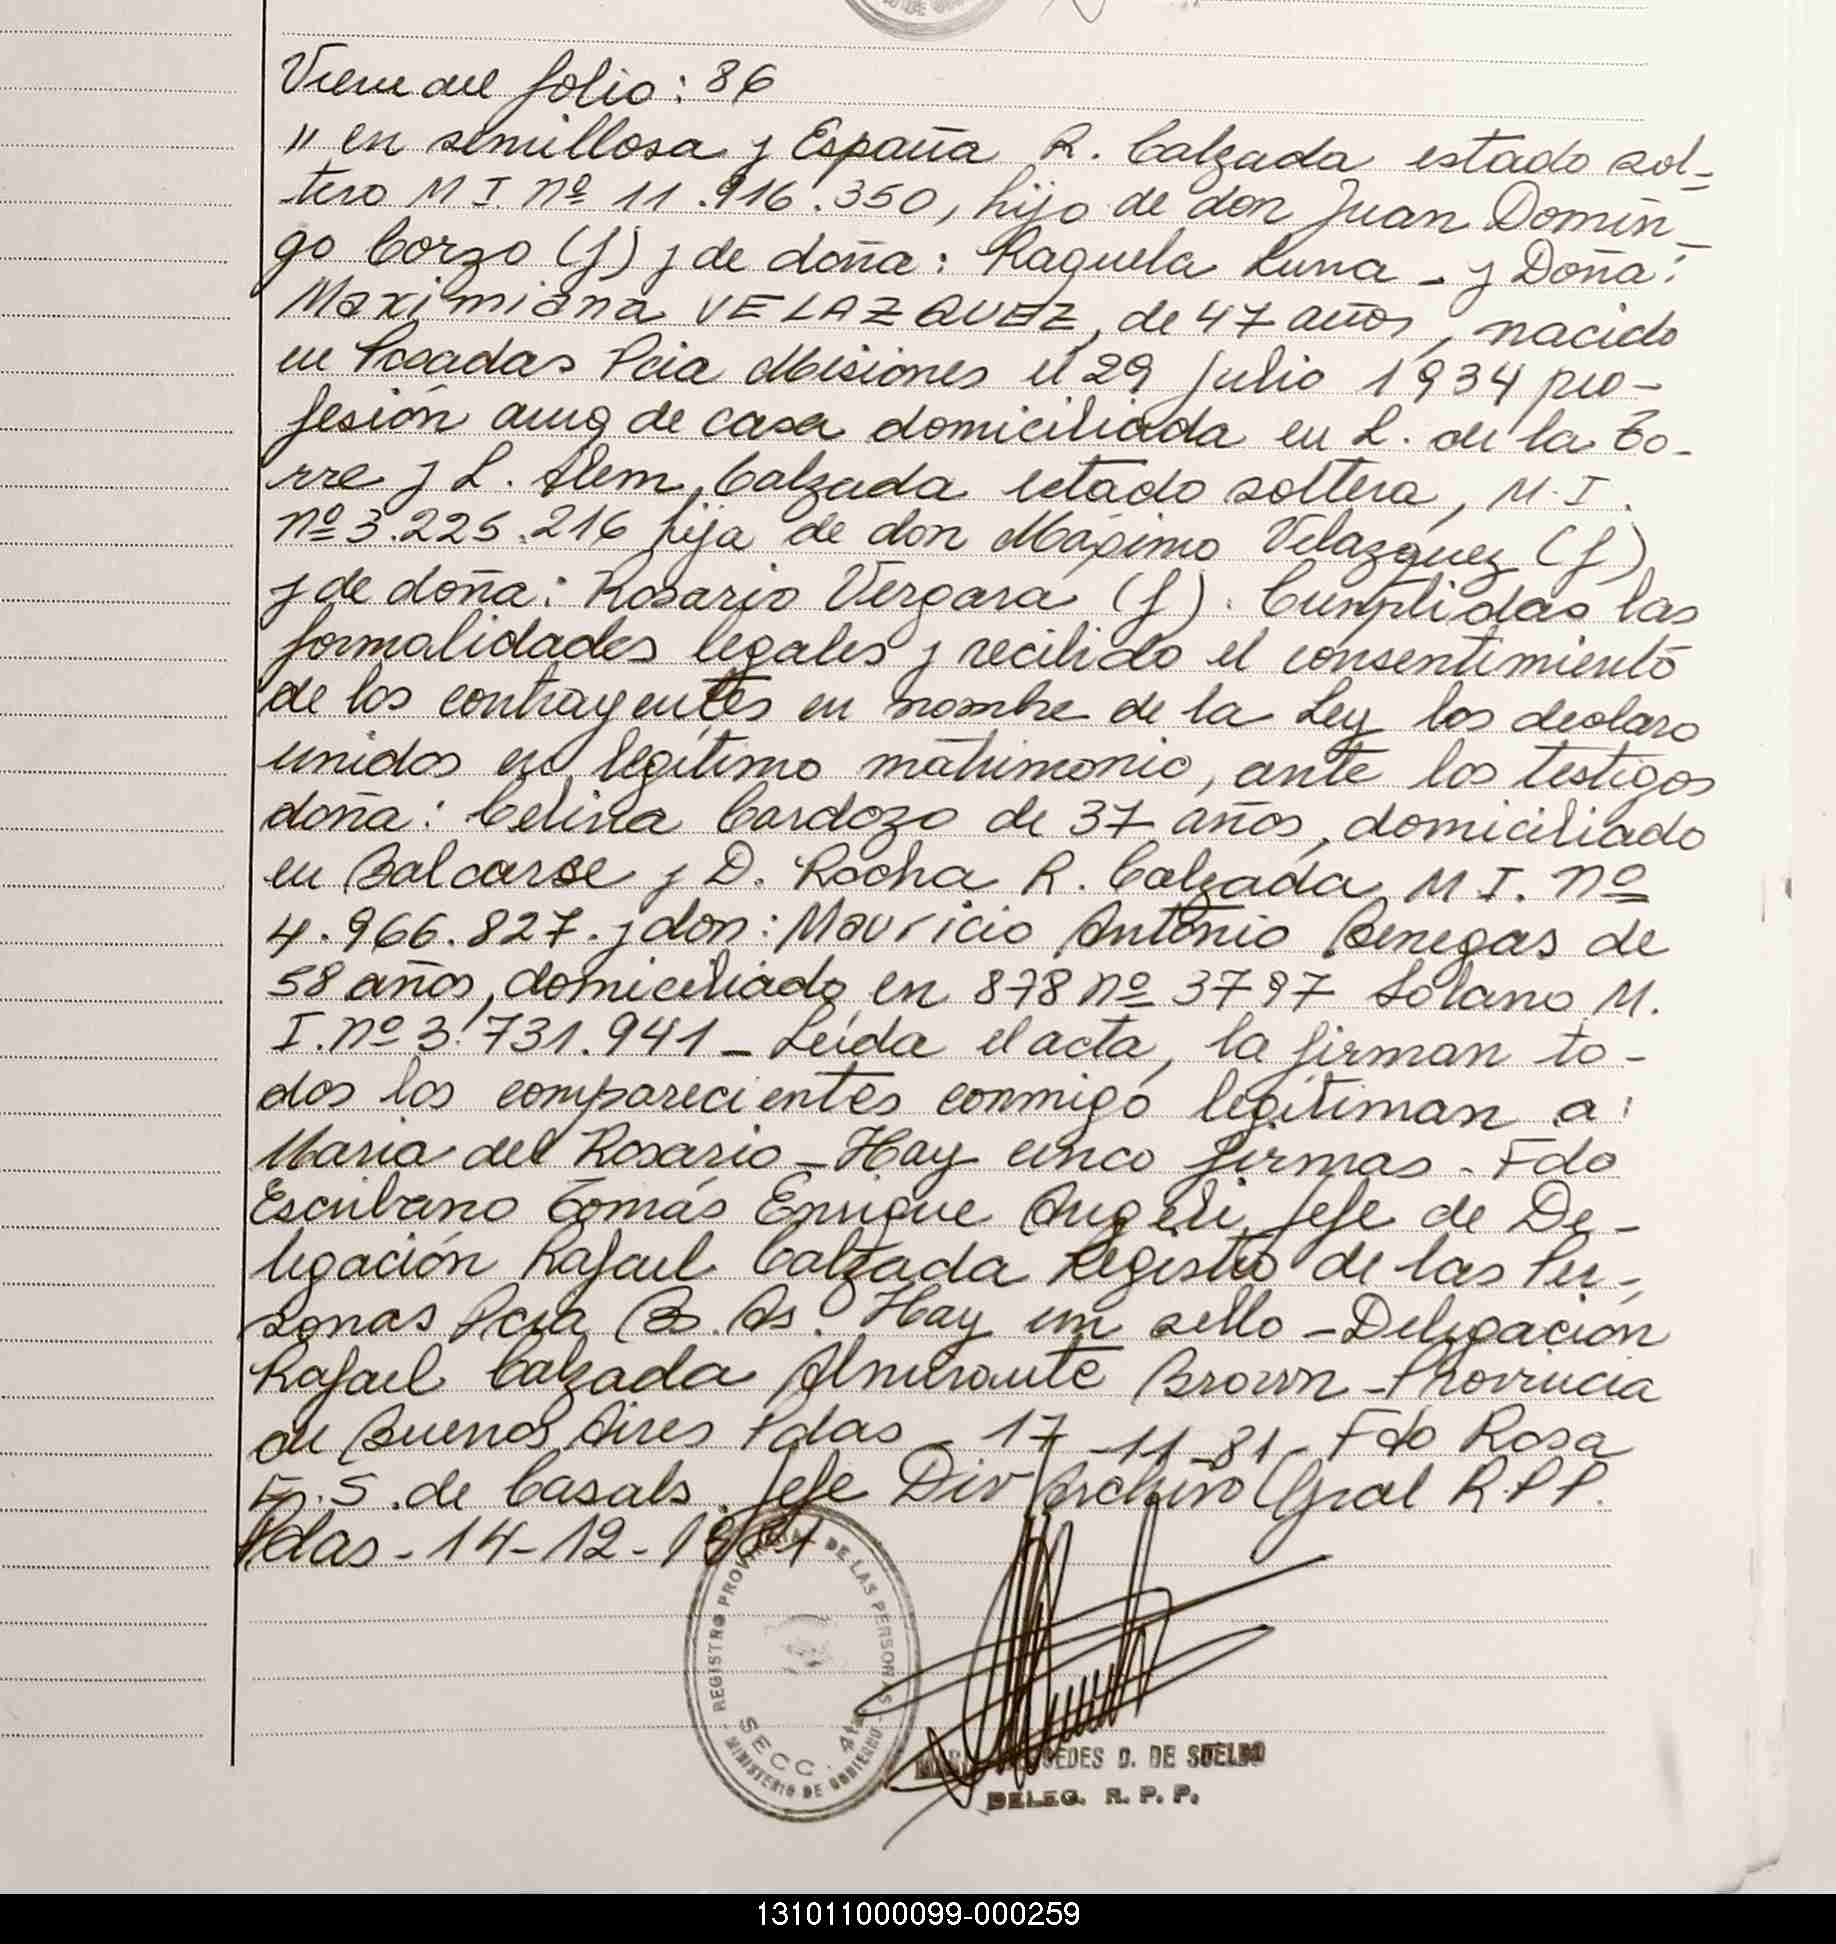 Viene del folio: 86
" en semillosa y España R. Calzada estado sol-
tero M I. Nº 11.916.350, hijo de don Juan Domin-
go Corzo (f) y de doña: Raquela Luna - y Doña:
Maximiana VELAZQUEZ, de 47 años, nacido
en Posadas Pcia Misiones el 29 Julio 1934 pro-
fesión ama de casa domiciliada en L. de la To-
rre y L. Alem, Calzada estado soltera, M. I.
Nº 3.225.216 hija de don Máximo Velazquez (f)
y de doña: Rosario Vergara (f). Cumplidas las
formalidades legales y recibido el consentimiento
de los contrayentes en nombre de la Ley los declaro
unidos en legítimo matrimonio, ante los testigos
doña: Celina Cardozo de 37 años, domiciliado
en Balcarse y D. Rocha R. Calzada M I. Nº
4.966.827. y don: Mauricio Antonio Benegas de
58 años, domiciliado en 878 Nº 3797 Solano M.
I. Nº 3.731.941 - Leída el acta, la firman to-
dos los comparecientes conmigo legitiman a:
Maria del Rosario - Hay cinco firmas - Fdo
Escribano Tomás Enrique Angeli, Jefe de De-
legación Rafael Calzada Registro de las Per-
sonas Pcia Bs. As. Hay un sello - Delegación
Rafael Calzada Almirante Brown - Provincia
de Buenos Aires Pdas - 17 - 11 - 81 - Fdo Rosa
E. S. de Casals. Jefe Div Archivo Gral R.P.P.
Pdas - 14 - 12 - 1981
REGISTRO PROVINCIAL DE LAS PERSONAS
SECC. 4ta
MINISTERIO DE GOBIERNO
MERCEDES D. DE SUELDO
DELEG. R. P. P.
131011000099-000259